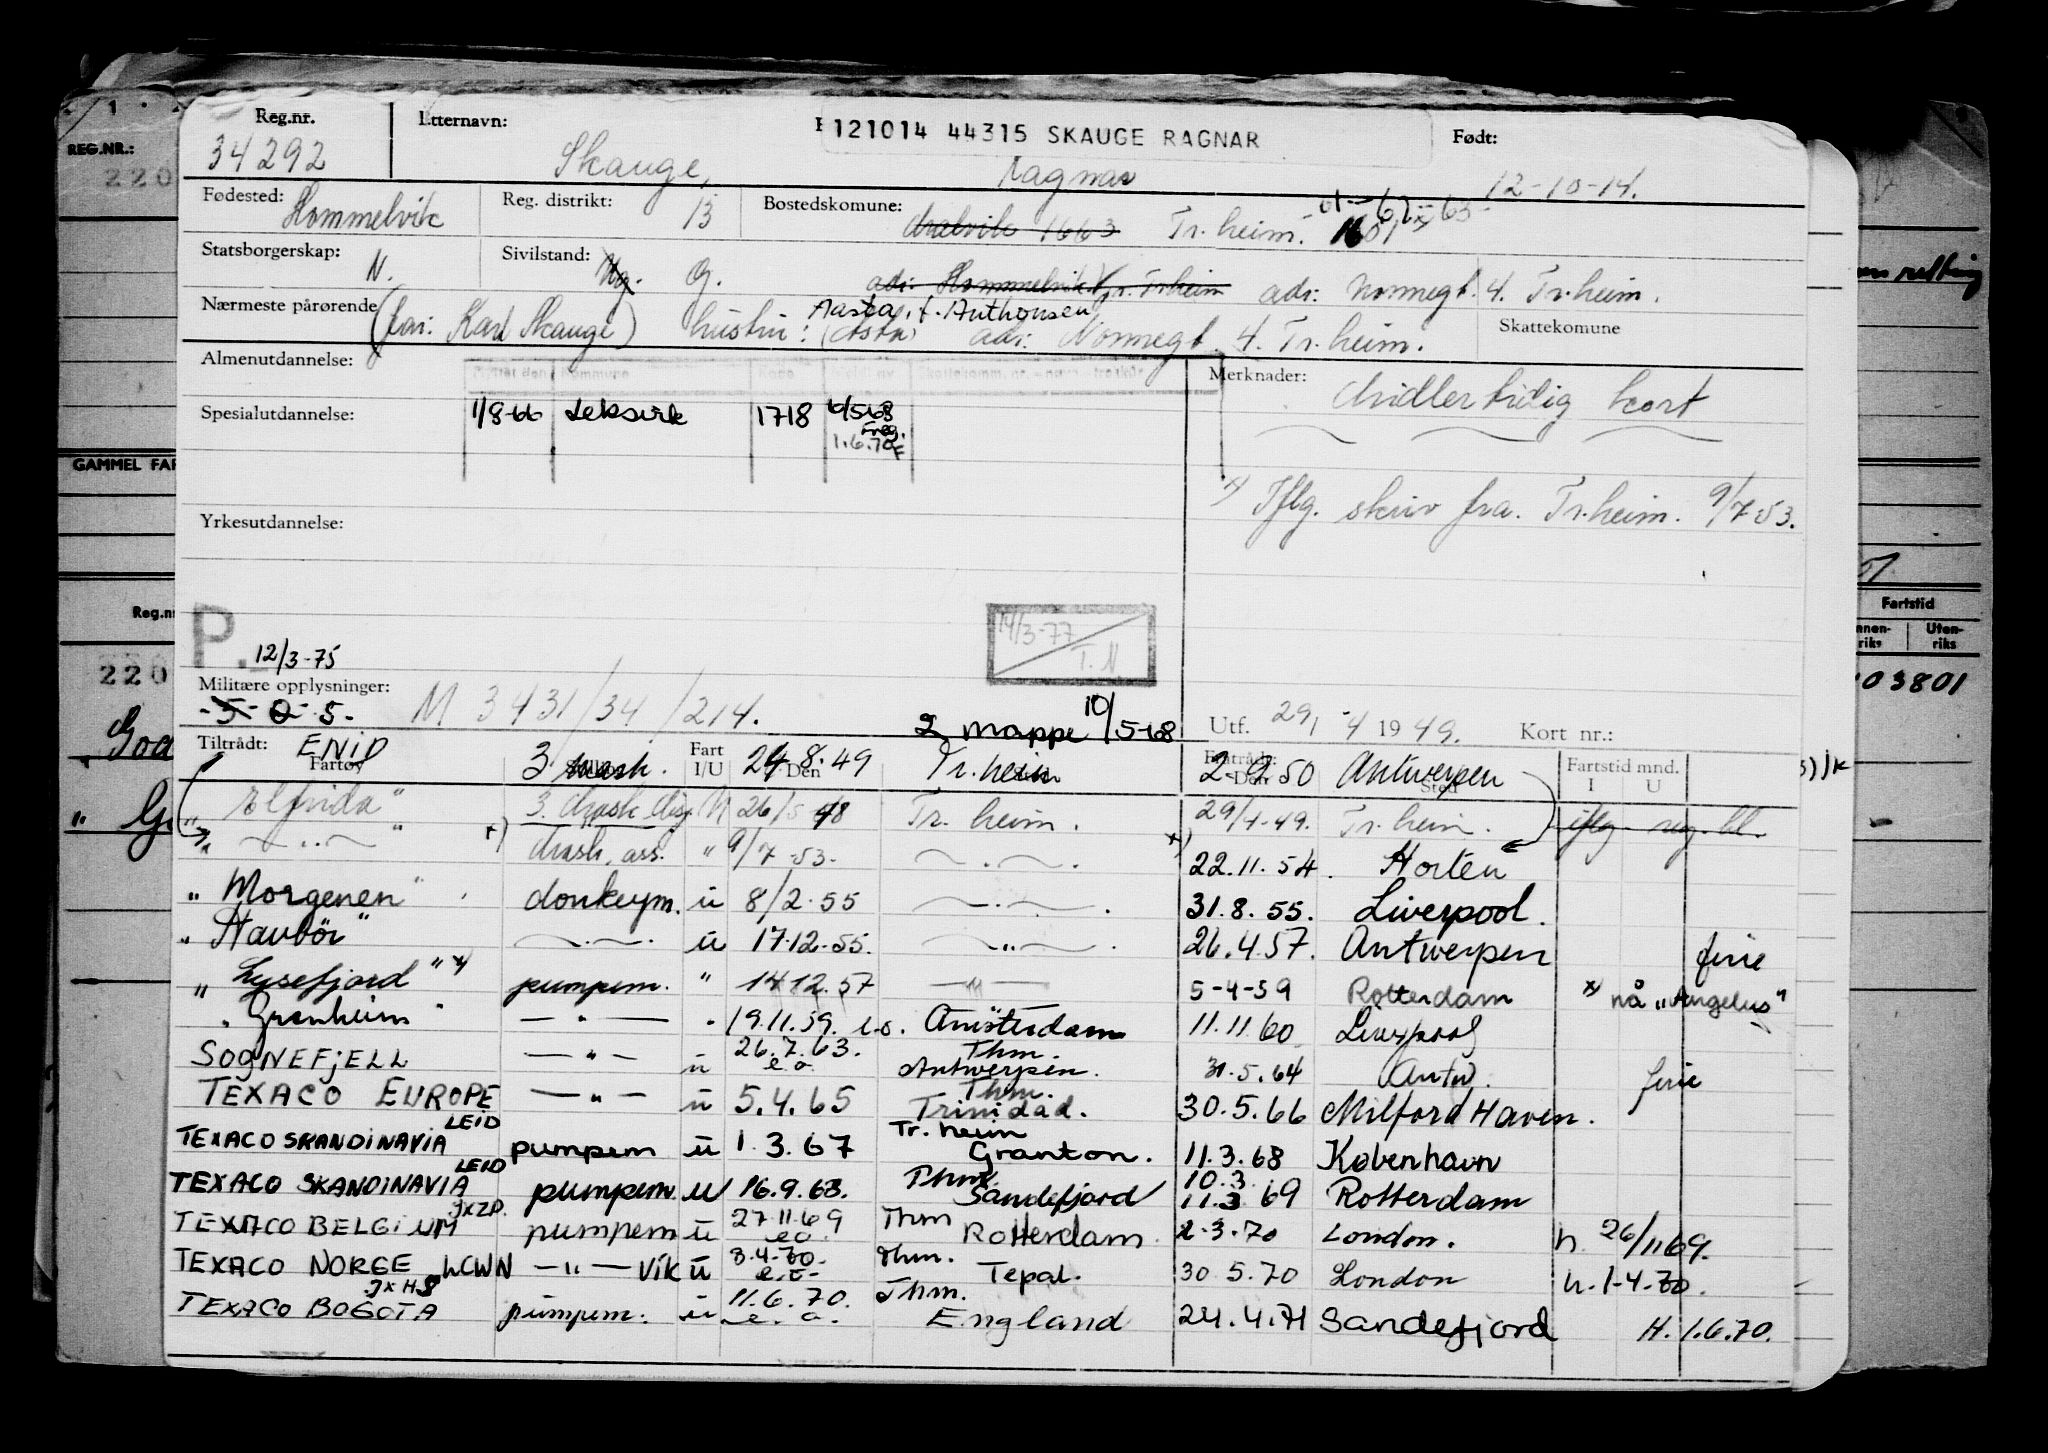 Reg.nr. Etternavn: 121014 44315 SKAUGE RAGNAR Født:
34292 Skauge, Ragnar 12-10-14.
Fødested: Hommelvik Reg. distrikt: 13 Bostedskomune: Malvik 1663 Tr.heim. 1601
Statsborgerskap: N. Sivilstand: Ug. G. adr: Hommelvik pr. Tr.heim adr: Nonnegt. 4. Tr.heim.
Nærmeste pårørende (far: Karl Skauge) hustru: Aasta, f. Anthonsen (Asta) adr: Nonnegt. 4. Tr.heim. Skattekomune
Almenutdannelse: Merknader: Midlertidig kort
Spesialutdannelse: 1/8-66 Leksvik 1718 10/5-68
1.6.70
x) Iflg. skriv fra Tr.heim. 9/7-53.
Yrkesutdannelse:
P.
12/3-75
14/3-77 T.N
Militære opplysninger: M 3431/34/214.
-5-0-5- 2 mappe 10/5-68 Utf. 29/4 1949. Kort nr.:
Tiltrådt: ENID 3 mask. Fart I/U 24.8.49 Den Tr.heim Fratrådt: Den 2.2.50 Antwerpen Sted Fartstid mnd. I U
Fartøy
" Elfrida " 3. Mask. U 26/5 48 Tr. heim. 29/4-49. Tr. heim. iflg. reg. bl.
" — " — " x) Mask. ass. " 9/7-53. — " — x) 22.11.54. Horten
" Morgenen " donkeym. u 8/2.55 — " — 31.8.55. Liverpool.
" Havbör " — " — u 17.12.55. — " — 26.4.57. Antwerpen ferie
" Lysefjord " x) pumpem. " 14.12.57 — " — 5-4-59 Rotterdam x) nå "Angelus"
" Granheim " — " — " 19.11.59. e.o. Amsterdam 11.11.60 Liverpool
SOGNEFJELL — " — u 26.7.63. e.o. Thm. Antwerpen. 31.5.64 Antw. ferie
TEXACO EUROPE — " — u 5.4.65 Thm. Trinidad. 30.5.66 Milford Haven.
TEXACO SKANDINAVIA LEID pumpem u 1.3.67 Tr.heim Granton. 11.3.68 København
TEXACO SKANDINAVIA LEID pumpem. u 16.9.68. Thm. Sandefjord 10.3 11.3 69 Rotterdam
TEXACO BELGIUM JXZP. pumpem u 27.11.69 e.o. Thm Rotterdam 2-3.70 London. h. 26/11 69.
TEXACO NORGE LCWN — " — Vik u 3.4.70. e.o. Thm. Tepal. 30.5.70 London h. 1-4.70.
TEXACO BOGOTA pumpem. u 11.6.70. e.o. Thm. England 24.4.71 Sandefjord H. 1.6.70.
REG.NR.:
220
GAMMEL FAR
Reg.nr
220
Fartstid
Innen-riks Uten-riks
03801